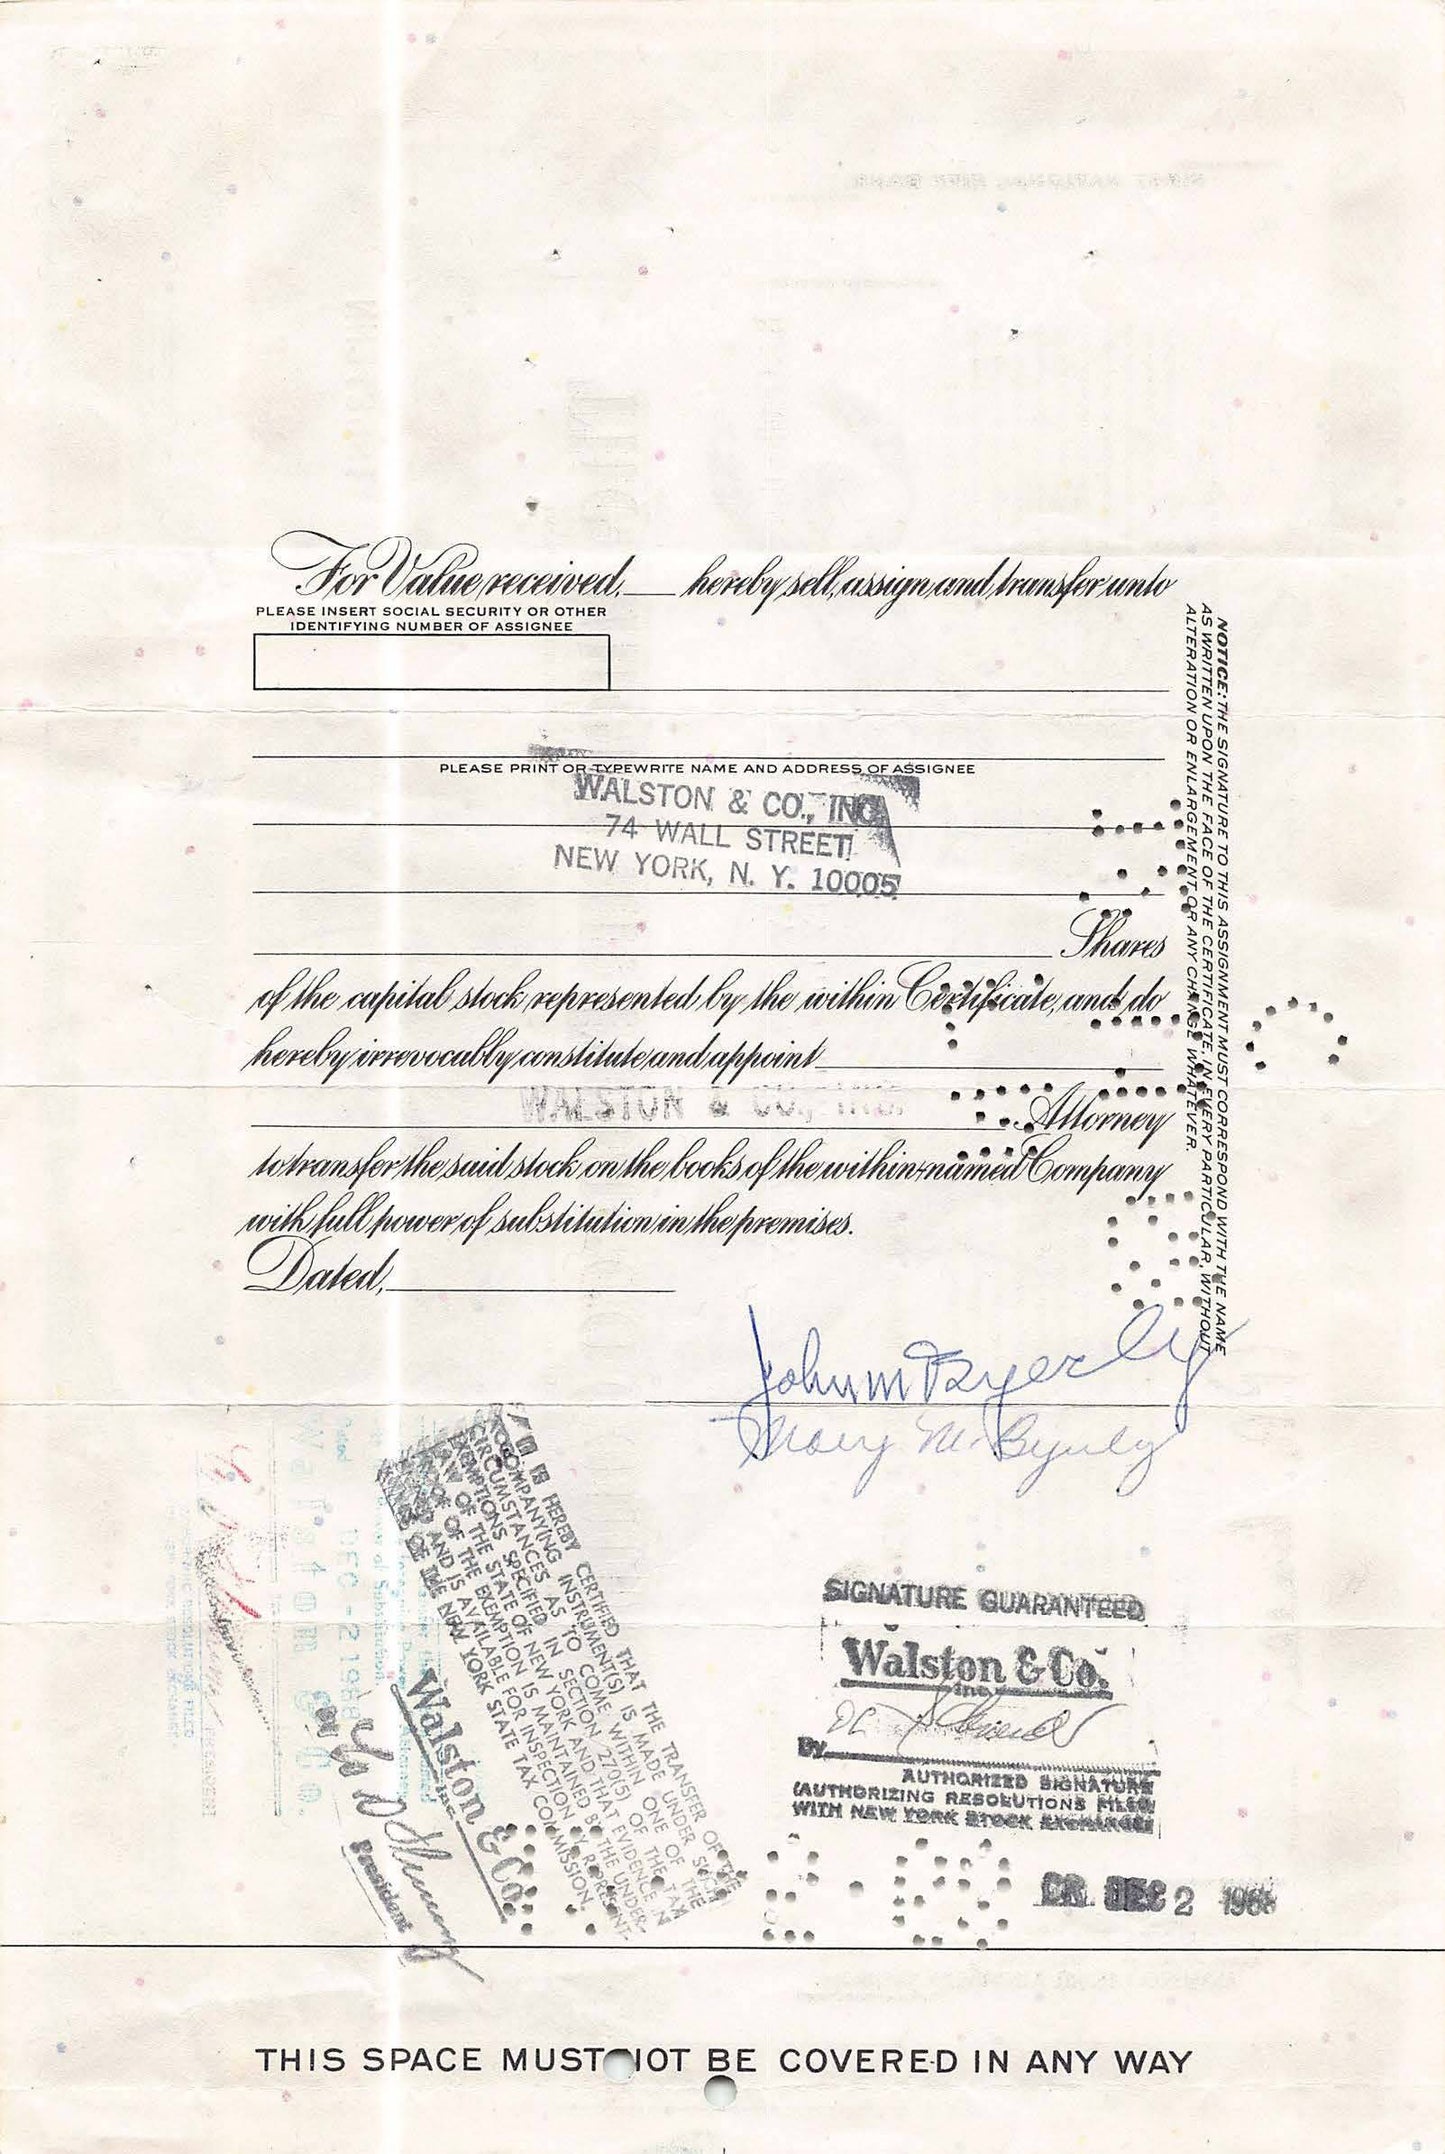 For Value received, ___ hereby sell, assign and transfer unto
PLEASE INSERT SOCIAL SECURITY OR OTHER
IDENTIFYING NUMBER OF ASSIGNEE
PLEASE PRINT OR TYPEWRITE NAME AND ADDRESS OF ASSIGNEE
WALSTON & CO., INC.
74 WALL STREET
NEW YORK, N. Y. 10005
Shares
of the capital stock represented by the within Certificate, and do
hereby irrevocably constitute and appoint
WALSTON & CO., INC.
Attorney
to transfer the said stock on the books of the within-named Company
with full power of substitution in the premises.
Dated,
NOTICE: THE SIGNATURE TO THIS ASSIGNMENT MUST CORRESPOND WITH THE NAME
AS WRITTEN UPON THE FACE OF THE CERTIFICATE, IN EVERY PARTICULAR, WITHOUT
ALTERATION OR ENLARGEMENT OR ANY CHANGE WHATEVER.
John M Byerly
Mary M. Byerly
HEREBY CERTIFIED THAT THE TRANSFER OF THE
ACCOMPANYING INSTRUMENT(S) IS MADE UNDER SUCH
CIRCUMSTANCES AS TO COME WITHIN ONE OF THE
EXEMPTIONS SPECIFIED IN SECTION 270(5) OF THE TAX
LAW OF THE STATE OF NEW YORK AND THAT EVIDENCE IN
PROOF OF THE EXEMPTION IS MAINTAINED BY THE UNDER-
AND IS AVAILABLE FOR INSPECTION BY REPRESENT-
OF THE NEW YORK STATE TAX COMMISSION.
Walston & Co.
Inc.
President
SIGNATURE GUARANTEED
Walston & Co.
Inc.
By
AUTHORIZED SIGNATURE
(AUTHORIZING RESOLUTIONS FILED
WITH NEW YORK STOCK EXCHANGE)
CR DEC 2 1968
THIS SPACE MUST NOT BE COVERED IN ANY WAY